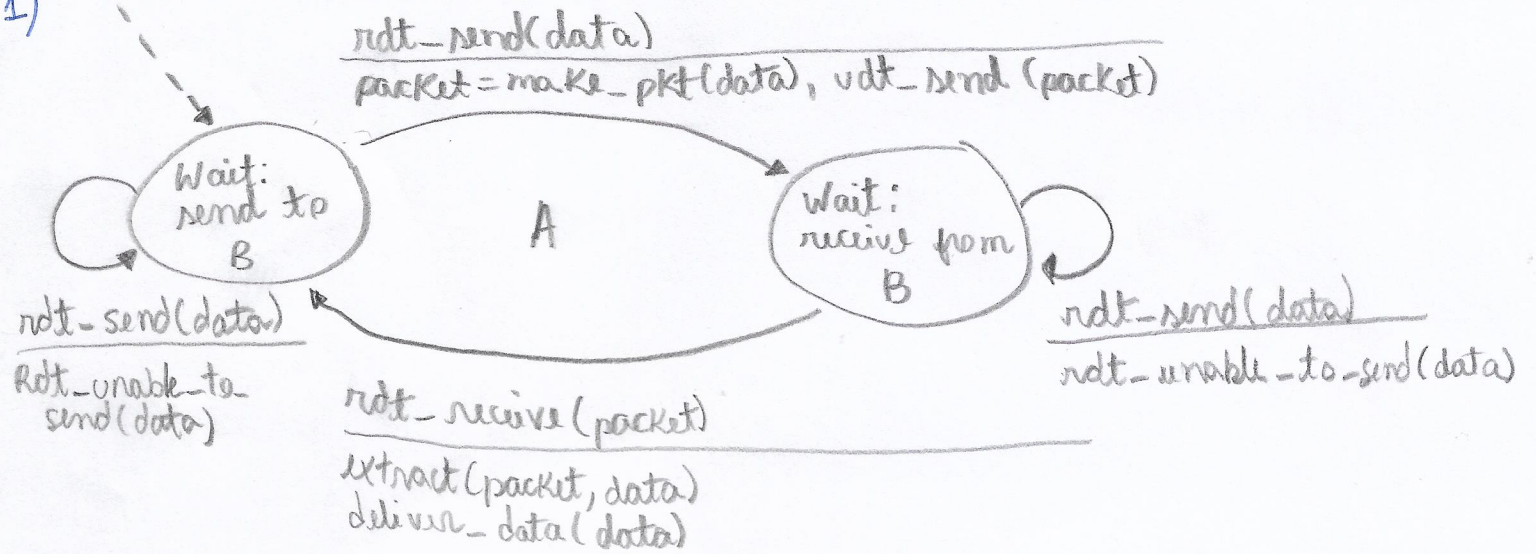 1)
rdt_send(data)
packet=make_pkt(data), udt_send (packet)
Wait:
send to
B
A
Wait:
receive from
B
rdt_send(data)
Rdt_unable_to_
send(data)
rdt_send(data)
rdt_unable_to_send(data)
rdt_receive(packet)
extract(packet, data)
deliver_data(data)